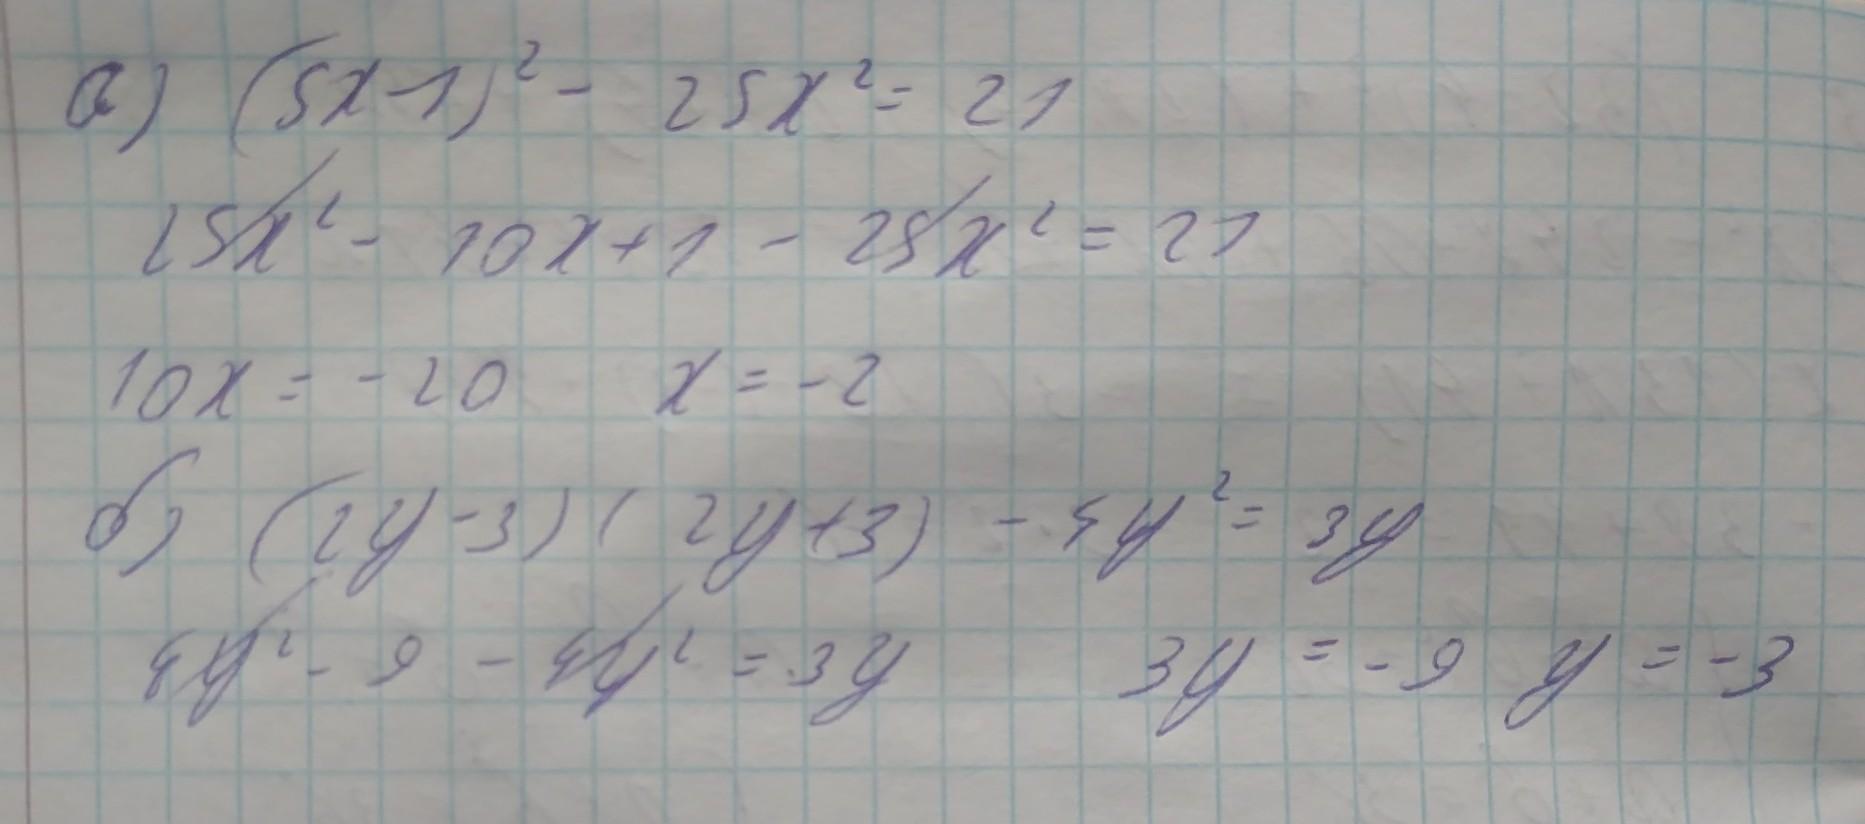 а) (5x-1)² - 25x² = 21
25x² - 10x + 1 - 25x² = 21
10x = -20 x = -2
б) (2y-3)(2y+3) - 4y² = 3y
4y² - 9 - 4y² = 3y 3y = -9 y = -3